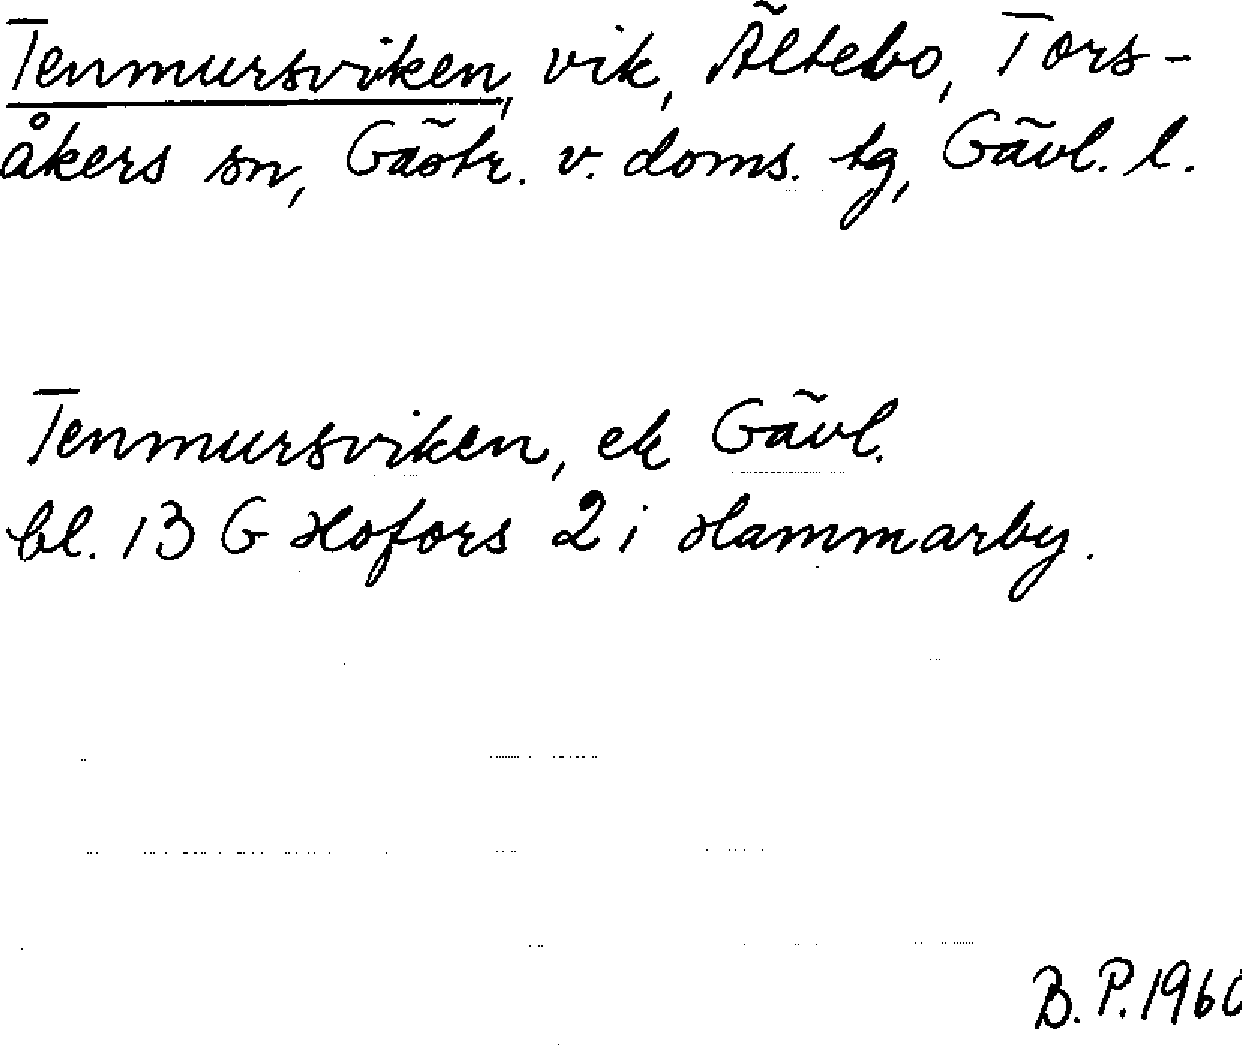 Tenmursviken, vik, Ältebo, Tors-
åkers sn, Gästr. v. doms. tg, Gävl. l.
Tenmursviken, ek Gävl.
bl. 13 G Hofors 2 i Hammarby.
B. P. 1960